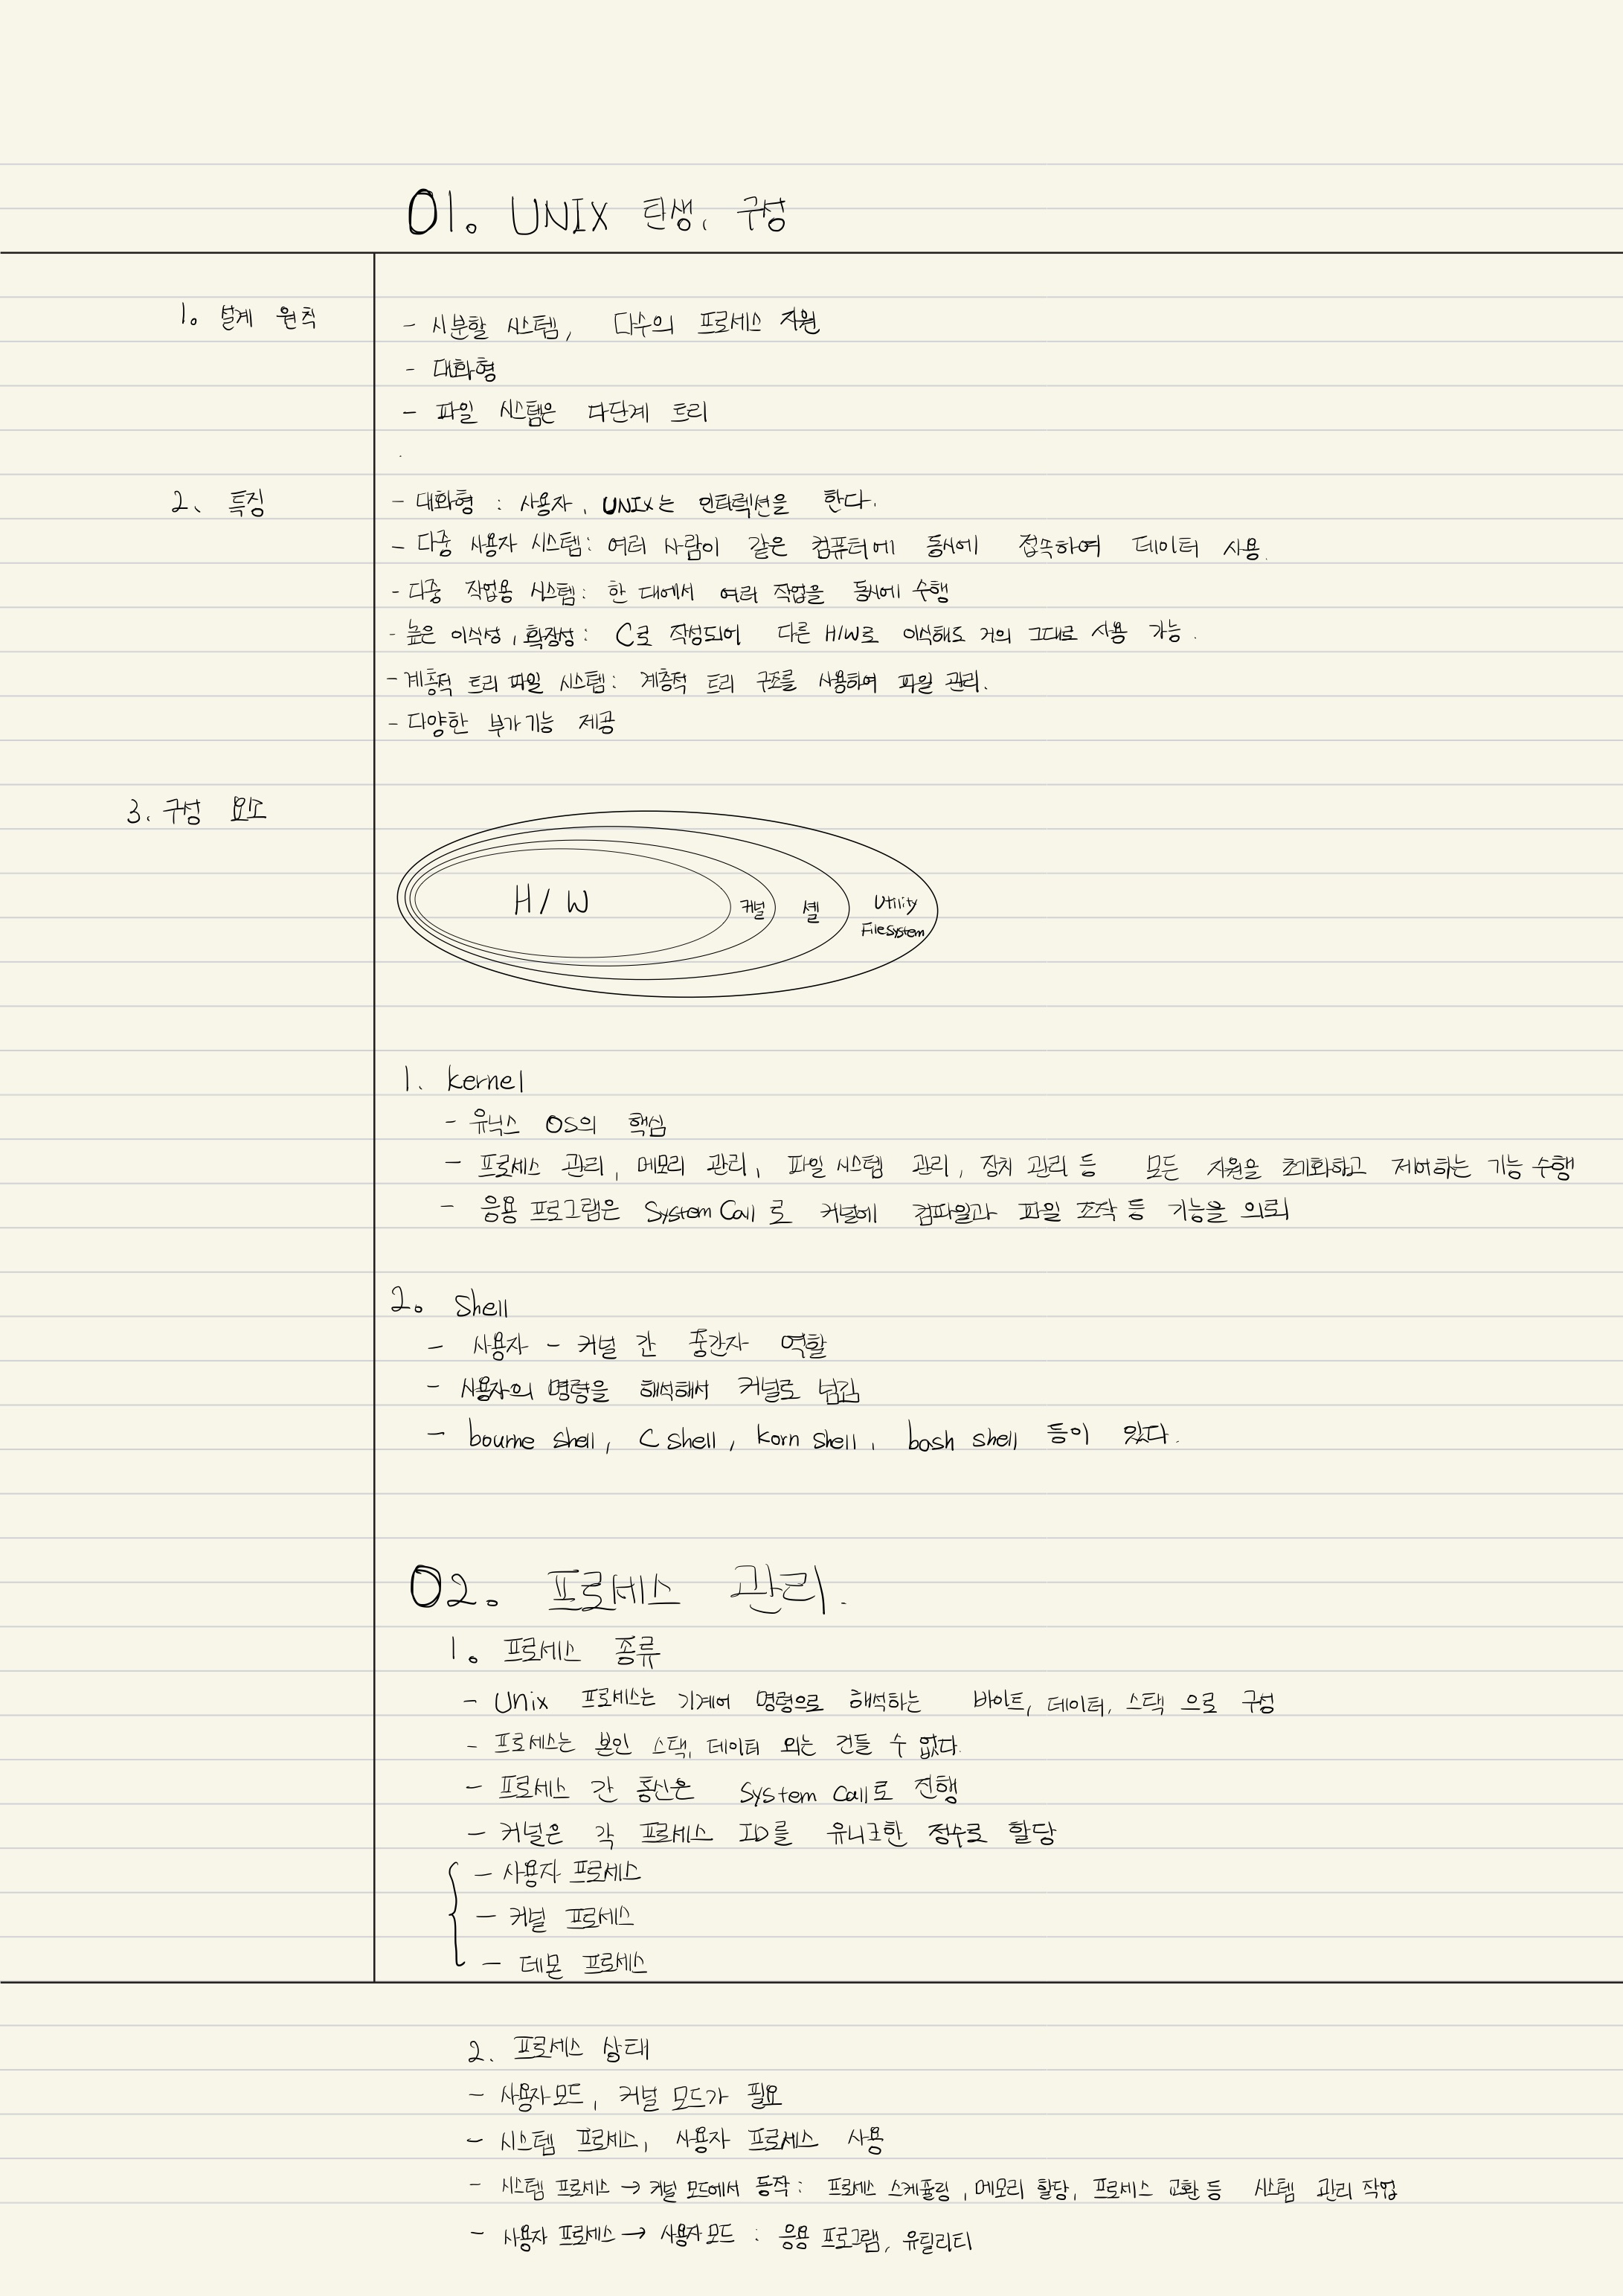 01. UNIX 탄생, 구성
1. 설계 원칙
- 시분할 시스템, 다수의 프로세스 지원
- 대화형
- 파일 시스템은 다단계 트리
2. 특징
- 대화형 : 사용자, UNIX는 인터렉션을 한다.
- 다중 사용자 시스템: 여러 사람이 같은 컴퓨터에 동시에 접속하여 데이터 사용.
- 다중 작업용 시스템: 한 대에서 여러 작업을 동시에 수행
- 높은 이식성, 확장성: C로 작성되어 다른 H/W로 이식해도 거의 그대로 사용 가능.
- 계층적 트리 파일 시스템: 계층적 트리 구조를 사용하여 파일 관리.
- 다양한 부가기능 제공
3. 구성 요소
H/W 커널 셸 Utility
FileSystem
1. kernel
- 유닉스 OS의 핵심
- 프로세스 관리, 메모리 관리, 파일 시스템 관리, 장치 관리 등 모든 자원을 초기화하고 제어하는 기능 수행
- 응용 프로그램은 System Call로 커널에 컴파일과 파일 조작 등 기능을 의뢰
2. Shell
- 사용자 - 커널 간 중간자 역할
- 사용자의 명령을 해석해서 커널로 넘김
- bourne shell, C shell, korn shell, bash shell 등이 있다.
02. 프로세스 관리.
1. 프로세스 종류
- Unix 프로세스는 기계어 명령으로 해석하는 바이트, 데이터, 스택 으로 구성
- 프로세스는 본인 스택, 데이터 외는 건들 수 없다.
- 프로세스 간 통신은 System Call로 진행
- 커널은 각 프로세스 ID를 유니크한 정수로 할당
- 사용자 프로세스
- 커널 프로세스
- 데몬 프로세스
2. 프로세스 상태
- 사용자 모드, 커널 모드가 필요
- 시스템 프로세스, 사용자 프로세스 사용
- 시스템 프로세스 → 커널 모드에서 동작: 프로세스 스케쥴링, 메모리 할당, 프로세스 교환 등 시스템 관리 작업
- 사용자 프로세스 → 사용자 모드 : 응용 프로그램, 유틸리티